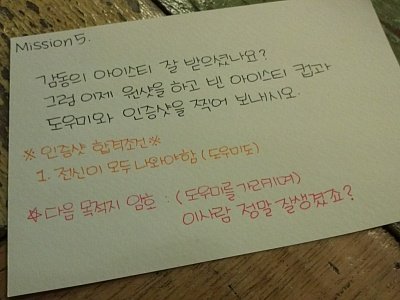 Mission 5.
감동의 아이스티 잘 받으셨나요?
그럼 이제 원샷을 하고 빈 아이스티 컵과
도우미와 인증샷을 찍어 보내시오.
※ 인증샷 합격조건 ※
1. 전신이 모두 나와야함 (도우미도)
☆ 다음 목적지 암호 : (도우미를 가르키며)
이사람 정말 잘생겼죠?